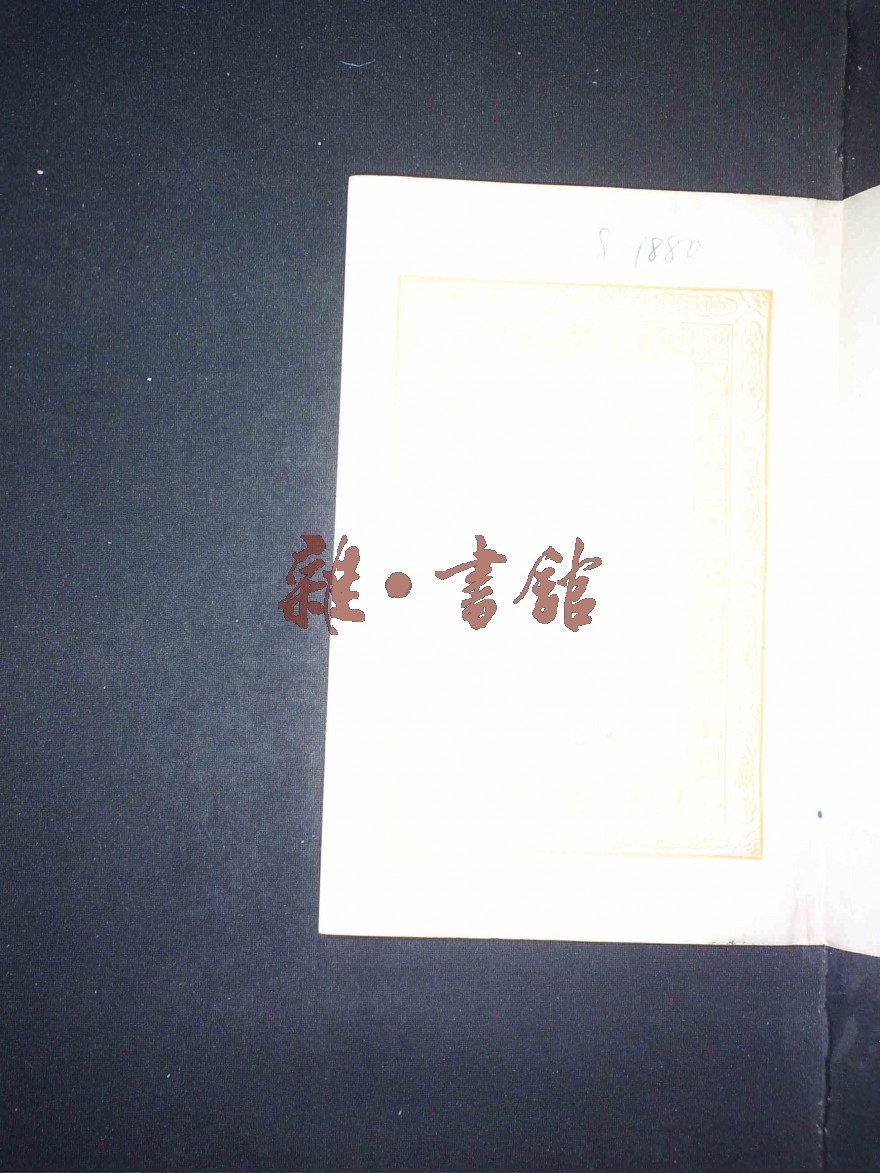 1880
雜·書館